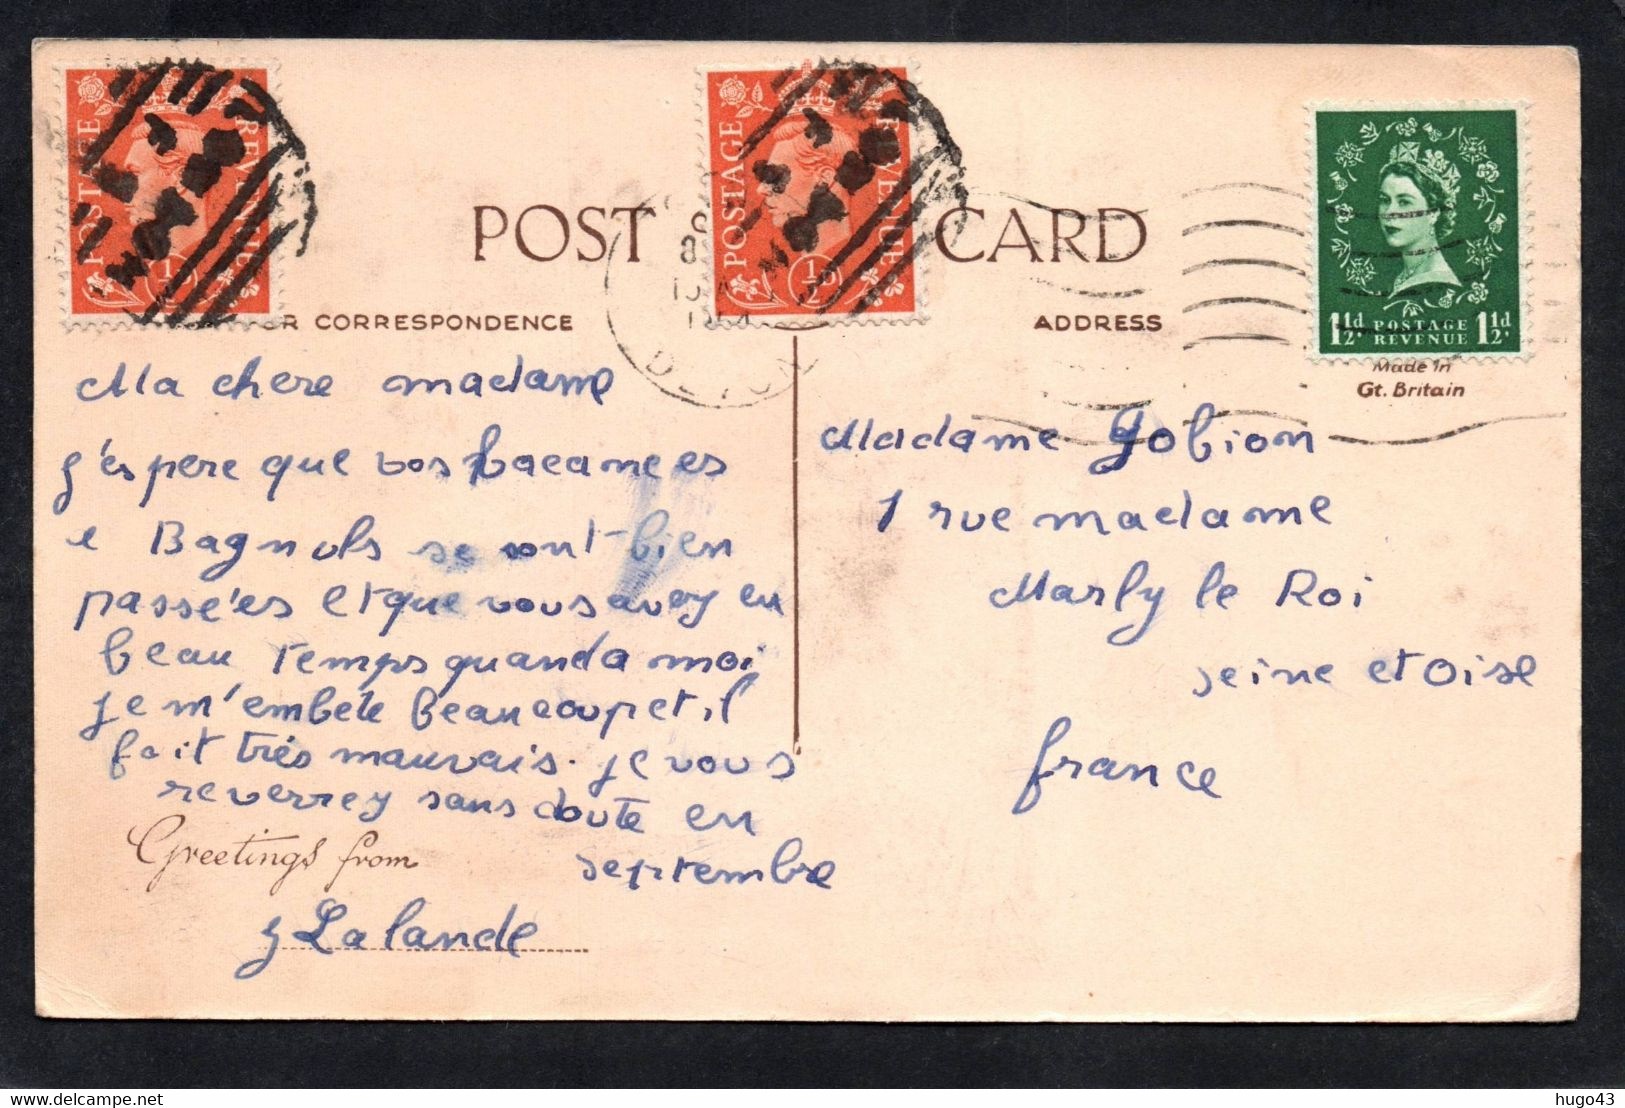 POSTAGE REVENUE ½D
POSTAGE REVENUE ½D
POST CARD
1½d. POSTAGE REVENUE 1½d.
OR CORRESPONDENCE
ADDRESS
Made in
Gt. Britain
1954
Ma chere madame
j'espere que vos vacances
a Bagnols se sont bien
passées et que vous avez eu
beau temps quand a moi
je m'embete beaucoup et il
fait très mauvais. je vous
reverrez sans doute en
septembre
Greetings from
y Lalande
Madame Gobion
1 rue madame
Marly le Roi
seine et Oise
france
hugo43